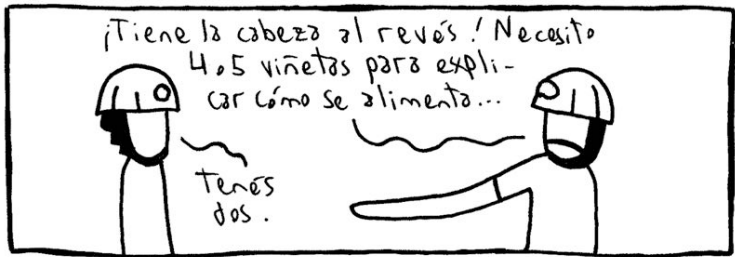 ¡Tiene la cabeza al revés! Necesito
4 o 5 viñetas para expli-
car cómo se alimenta...
Tenés
dos.